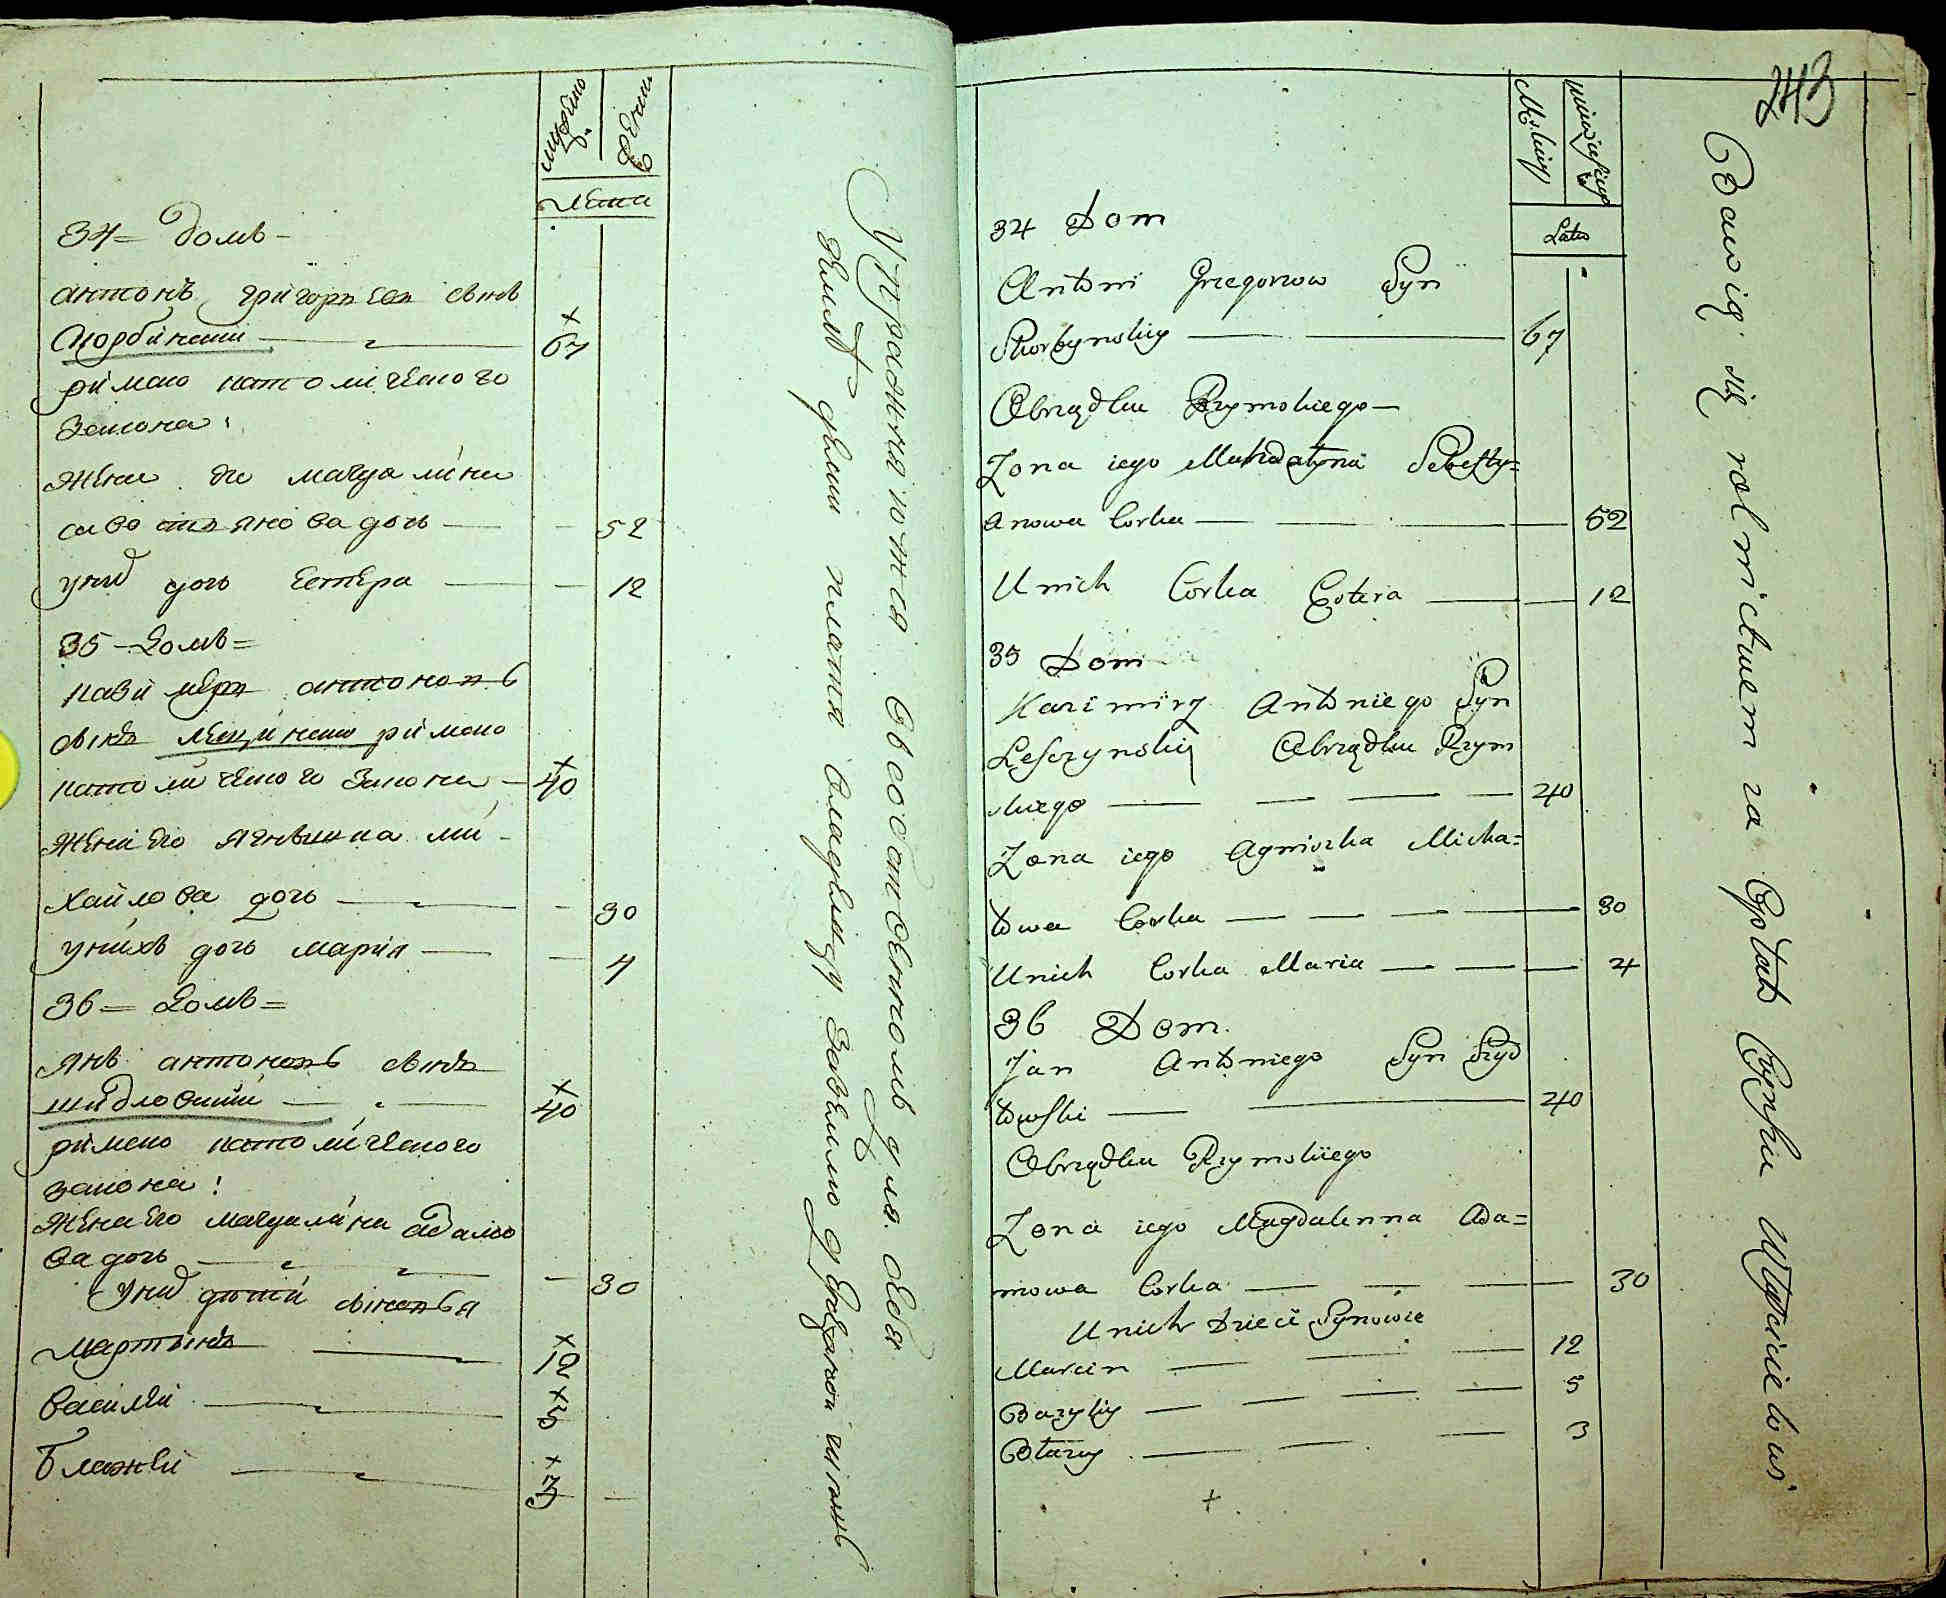 мужеско
женск
Лета
34 = домъ -
антонъ григорьевъ сынъ
скорбински 67
римско католическаго
закона:
жена его магдалина
савостьянова дочь 52
у них дочь Естера 12
35 - Домъ =
казимеръ антоновъ
сынъ лещински римско
католическаго закона 40
жена его агнешка ми-
хайлова дочь 30
у нихъ дочь мария 4
36 = Домъ =
янъ антоновъ сынъ
шидловский 40
римско католическаго
закона:
жена его магдалина адамо
ва дочь 30
у них дети сыновья
мартынъ 12
василей 5
Блажей 3
Упражняются въ собственномъ для себя
платя владельцу
243
Męskiey
Lata
34 Dom
Antoni Gregorzow Syn
Skorbynskiy 67
Obrządku Rzymskiego
Zona iego Mahdalyna Sebesty=
anowa Corka 52
Unich Corka Estera 12
35 Dom
Kazimirz Antoniego Syn
Lesczynskij Obrządku Rzym
skiego 40
Zona iego Agniszka Micha=
łowa Corka 30
Unich Corka Maria 4
36 Dom.
Jan Antoniego Syn Szyd
łowski 40
Obrządku Rzymskiego
Zona iego Magdalenna Ada=
mowa Corka 30
Unich Dzieci Synowie
Marcin 12
Bazyliy 5
Błazey 3
Bawią się rolnictwem za Opłatą Czynszu Właścicielowi